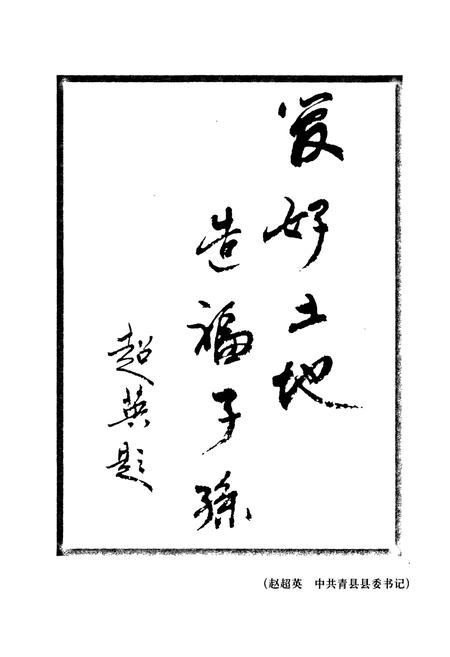 管好土地
造福子孫
超英題
(赵超英 中共青县县委书记)